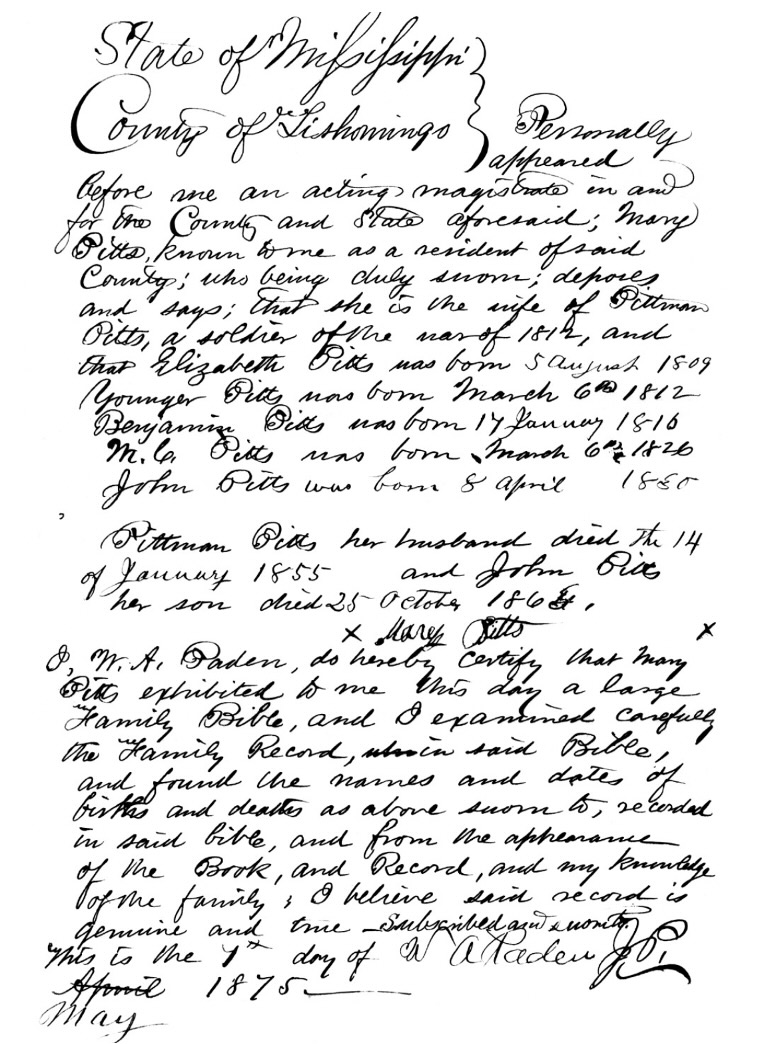 State of Mississippi
County of Tishomingo
Personally
appeared
before me an acting magistrate in and
for the County and State aforesaid; Mary
Pitts, known to me as a resident of said
County; who being duly sworn; deposes
and says; that she is the wife of Pittman
Pitts, a soldier of the war of 1812, and
that Elizabeth Pitts was born 5 August 1809
Younger Pitts was born March 6th 1812
Benjamin Pitts was born 17 January 1816
M. C. Pitts was born March 6th 1826
John Pitts was born 8 April
Pittman Pitts her husband died the 14
of January 1855 and John Pitts
her son died 25 October
x Mary Pitts x
I, W. A. Paden, do hereby certify that Mary
Pitts exhibited to me this day a large
Family Bible, and I examined carefully
the Family Record, in said Bible,
and found the names and dates of
births and deaths as above sworn to, recorded
in said bible, and from the appearance
of the Book, and Record, and my knowledge
of the family; I believe said record is
genuine and true – Subscribed and sworn to
this is the day of W A Paden J.P.
April 1875
May